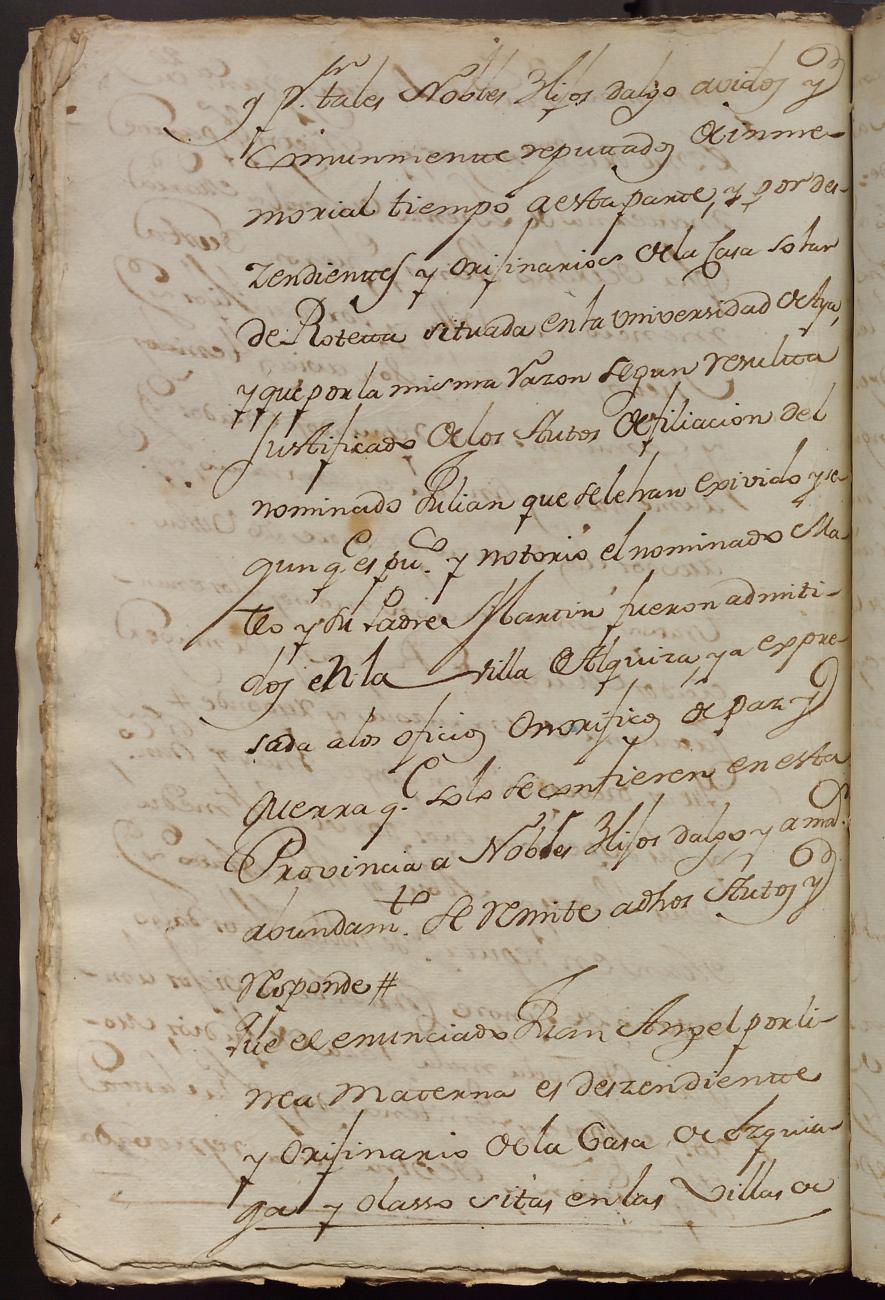 y pr. tales Nobles Hijos dalgo avidos y
Comunmente reputados de inme-
morial tiempo a esta parte, y por des-
zendientes y Orijinarios de la Casa Solar
de Roteta situada en la Universidad de Aya,
y que por la misma razon segun resulta
Justificado de los Autos de filiacion del
nominado Julian que se le han exivido y se-
gun qe. es puco. y notorio el nominado Ma-
teo y su Padre Martin fueron admiti-
dos en la Villa de Alquiza, ya expre-
sada a los oficios Onorificos de paz y
Guerra qe. solo se confieren en esta
Provincia a Nobles Hijos dalgo y a mor.
abundamto. se remite a dhos Autos y
Responde #
Que el enunciado Juan Angel por li-
nea Materna es deszendiente
y Orijinario de la Casa de Ezquia-
ga y Olasso sitas en las Villas de